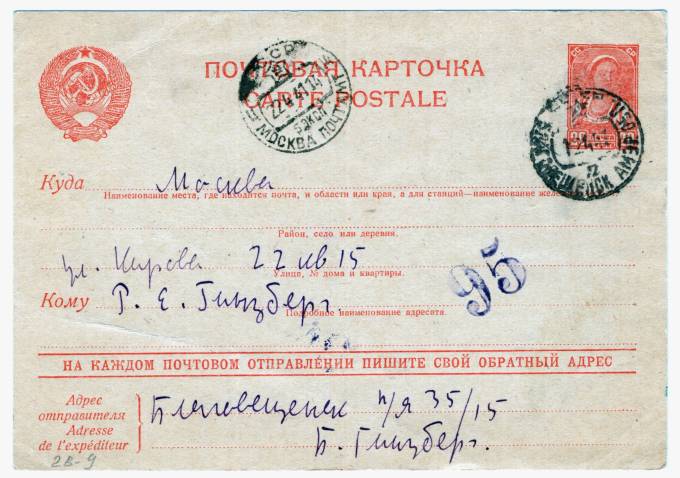 ПОЧТОВАЯ КАРТОЧКА
CARTE POSTALE
22 4 41
МОСКВА ПОЧТАМТ
Куда Москва
Наименование места, где находится почта, и области или края, а для станций—наименование
Район, село или деревня.
ул. Кирова 22 кв 15
Улица, № дома и квартиры.
Кому Р. Е. Гинзберг.
Подробное наименование адресата.
95
НА КАЖДОМ ПОЧТОВОМ ОТПРАВЛЕНИИ ПИШИТЕ СВОЙ ОБРАТНЫЙ АДРЕС
Адрес
отправителя
Adresse
de l'expéditeur
Благовещенск п/я 35/15
Б. Гинзберг.
2В-9